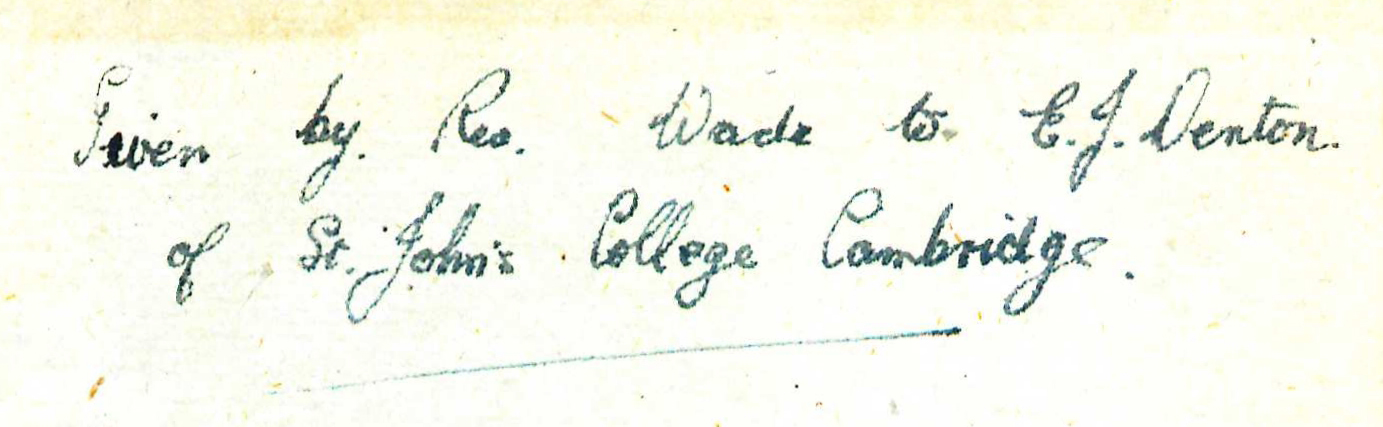 Given by. Rev. Wade to E.J. Denton.
of St. John's College Cambridge.